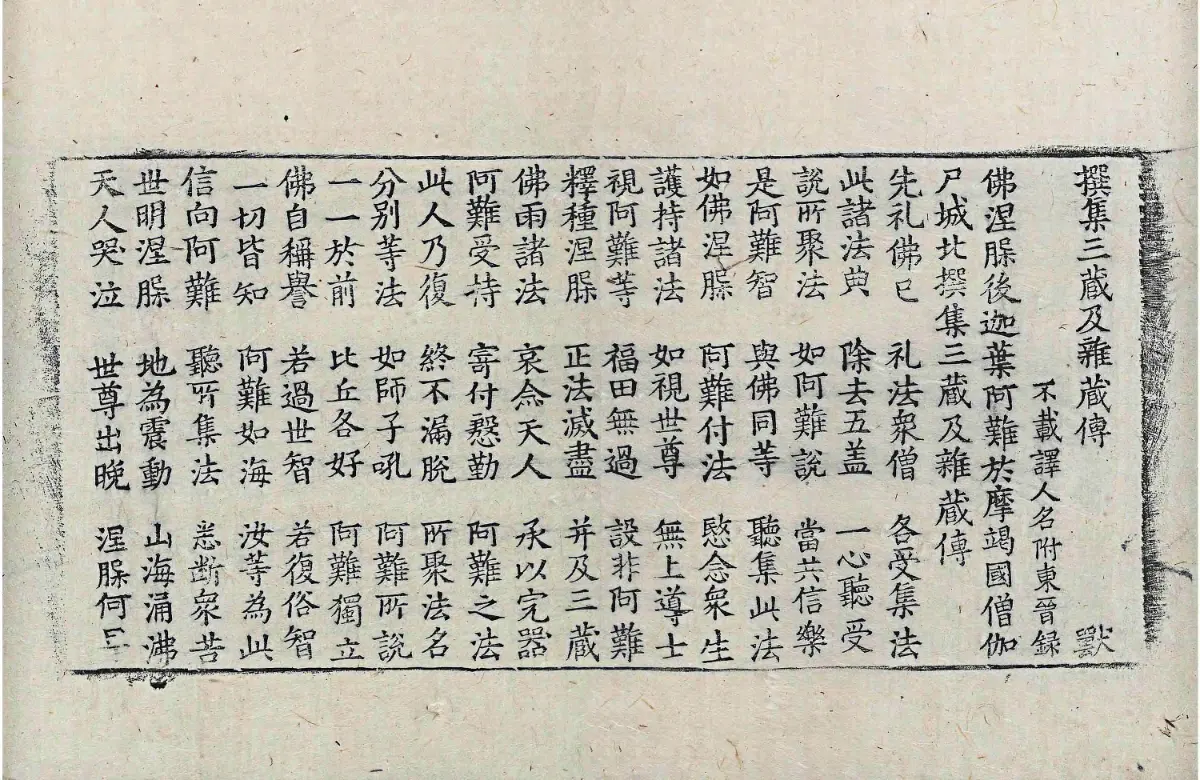 撰集三蔵及雜蔵傳 獸
不載譯人名附東晉録
佛涅槃後迦葉阿難於摩竭國僧伽
尸城北撰集三蔵及雜蔵傳
先礼佛已 礼法衆僧 各受集法
此諸法典 除去五盖 一心聽受
說所聚法 如阿難說 當共信樂
是阿難智 與佛同等 聽集此法
如佛涅槃 阿難付法 愍念衆生
護持諸法 如視世尊 無上導士
視阿難等 福田無過 設非阿難
釋種涅槃 正法滅盡 并及三蔵
佛雨諸法 哀念天人 承以完器
阿難受持 寄付慇勤 阿難之法
此人乃復 終不漏脫 所聚法名
分别等法 如師子吼 阿難所說
一一於前 比丘各好 阿難獨立
佛自稱譽 若過世智 若復俗智
一切皆知 阿難如海 汝等為此
信向阿難 聽所集法 悉斷衆苦
世明涅槃 地為震動 山海涌沸
天人哭泣 世尊出晚 涅槃何